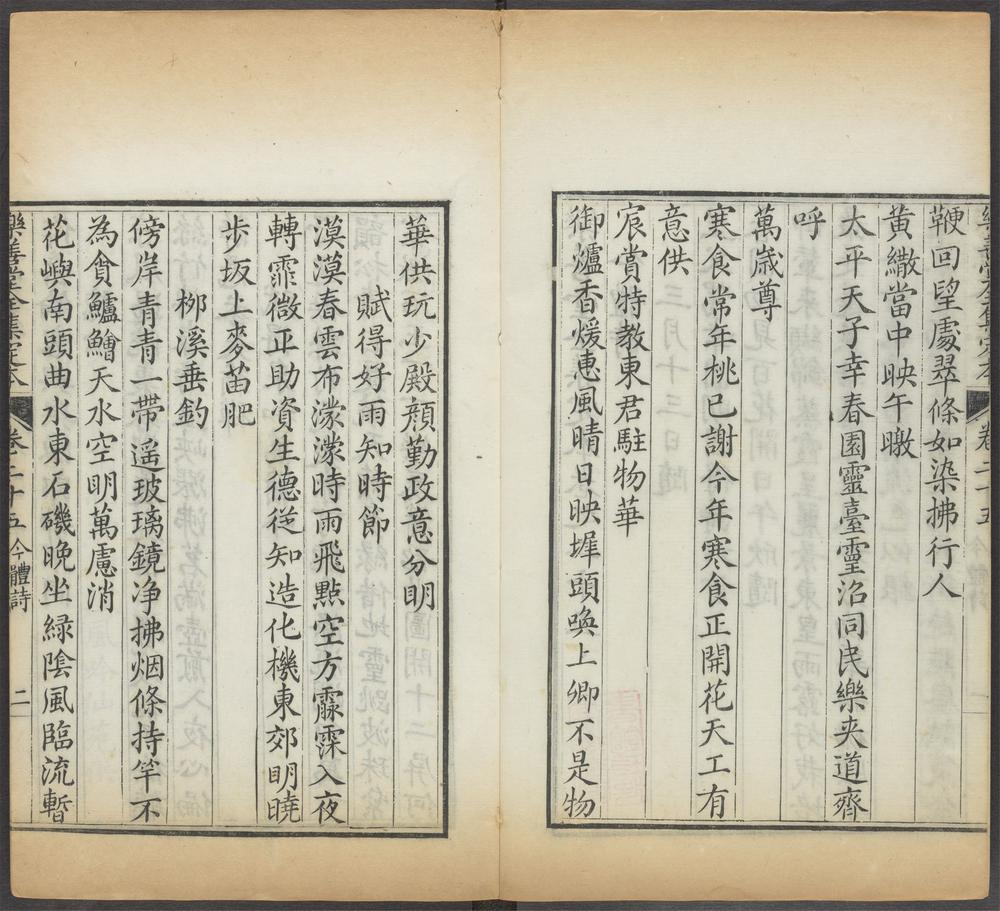 鞭回望處翠條如染拂行人
黃繖當中映午暾
太平天子幸春園靈臺靈沼同民樂夾道齊
呼
萬歳尊
寒食常年桃已謝今年寒食正開花天工有
意供
宸賞特教東君駐物華
御爐香煖惠風晴日映墀頭喚上卿不是物
華供玩少殿顔勤政意分明
賦得好雨知時節
漠漠春雲布濛濛時雨飛點空方霢霂入夜
轉霏微正助資生德從知造化機東郊明曉
步坂上麥苗肥
柳溪垂釣
傍岸青青一帶遥玻璃鏡净拂烟條持竿不
為貪鱸鱠天水空明萬慮消
花嶼南頭曲水東石磯晚坐緑陰風臨流暫
樂善堂全集定本 卷二十五 今體詩 二